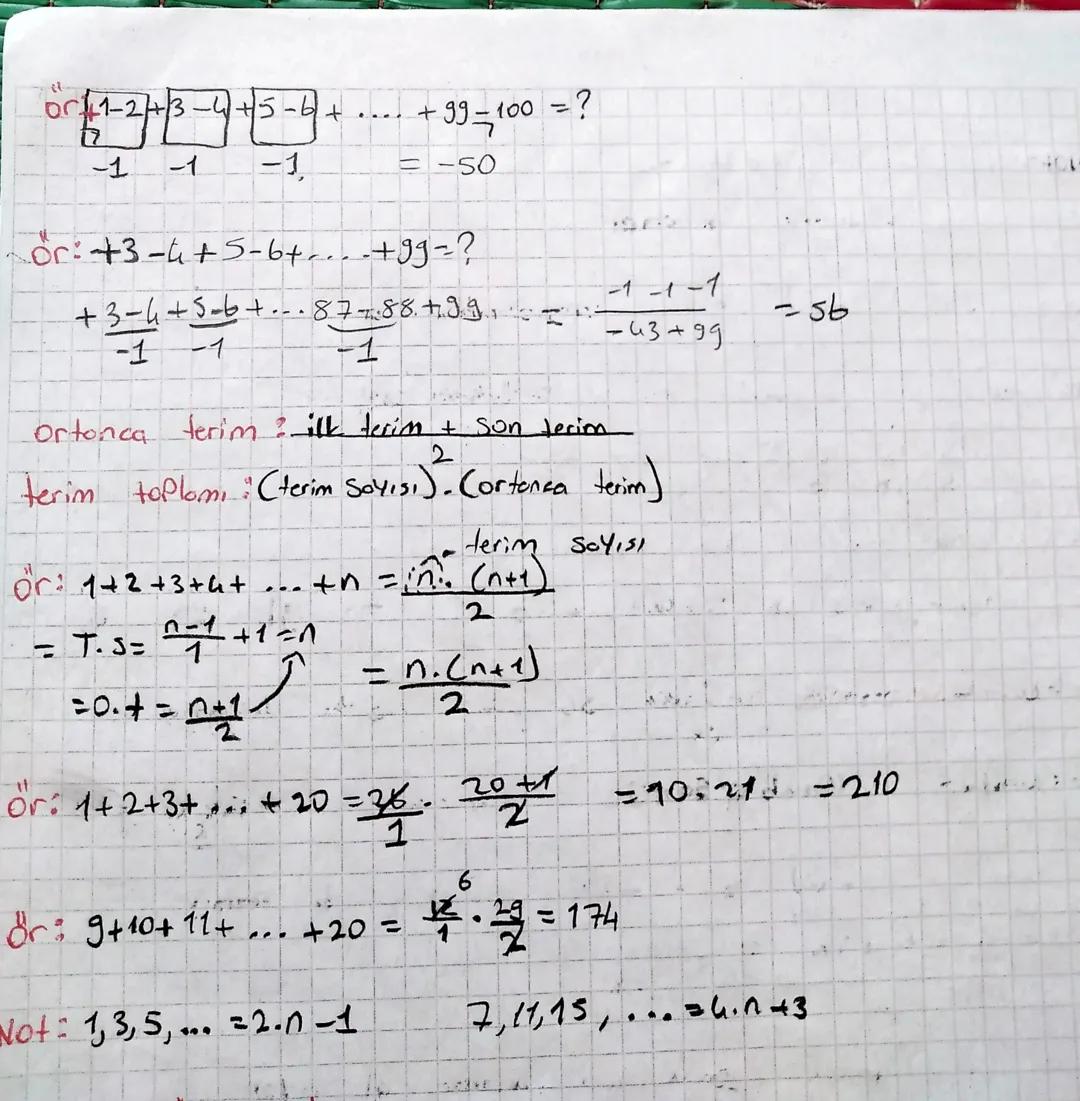 ör: +1-2+3-4+5-6+ .... +99-100 = ?
-1 -1 -1 = -50
Ör: +3-4+5-6+.....+99=?
+3-4+5-6+...87-88+99 = -1 -1 -1 / -43+99 = 56
-1 -1 -1
ortanca terim : ilk terim + son terim / 2
terim toplamı : (terim sayısı).(ortanca terim)
terim sayısı
Ör: 1+2+3+4+ ... +n = n.(n+1) / 2
= T.S= n-1 / 1 +1=n
= n.(n+1) / 2
=O.t = n+1 / 2
Ör: 1+2+3+ ... + 20 = 20 / 1 . 20+1 / 2 =10.21 =210
Ör: 9+10+11+ ... +20 = 12 / 1 . 29 / 2 = 174
6
Not: 1,3,5,... =2.n-1 7,11,15,... =4.n+3